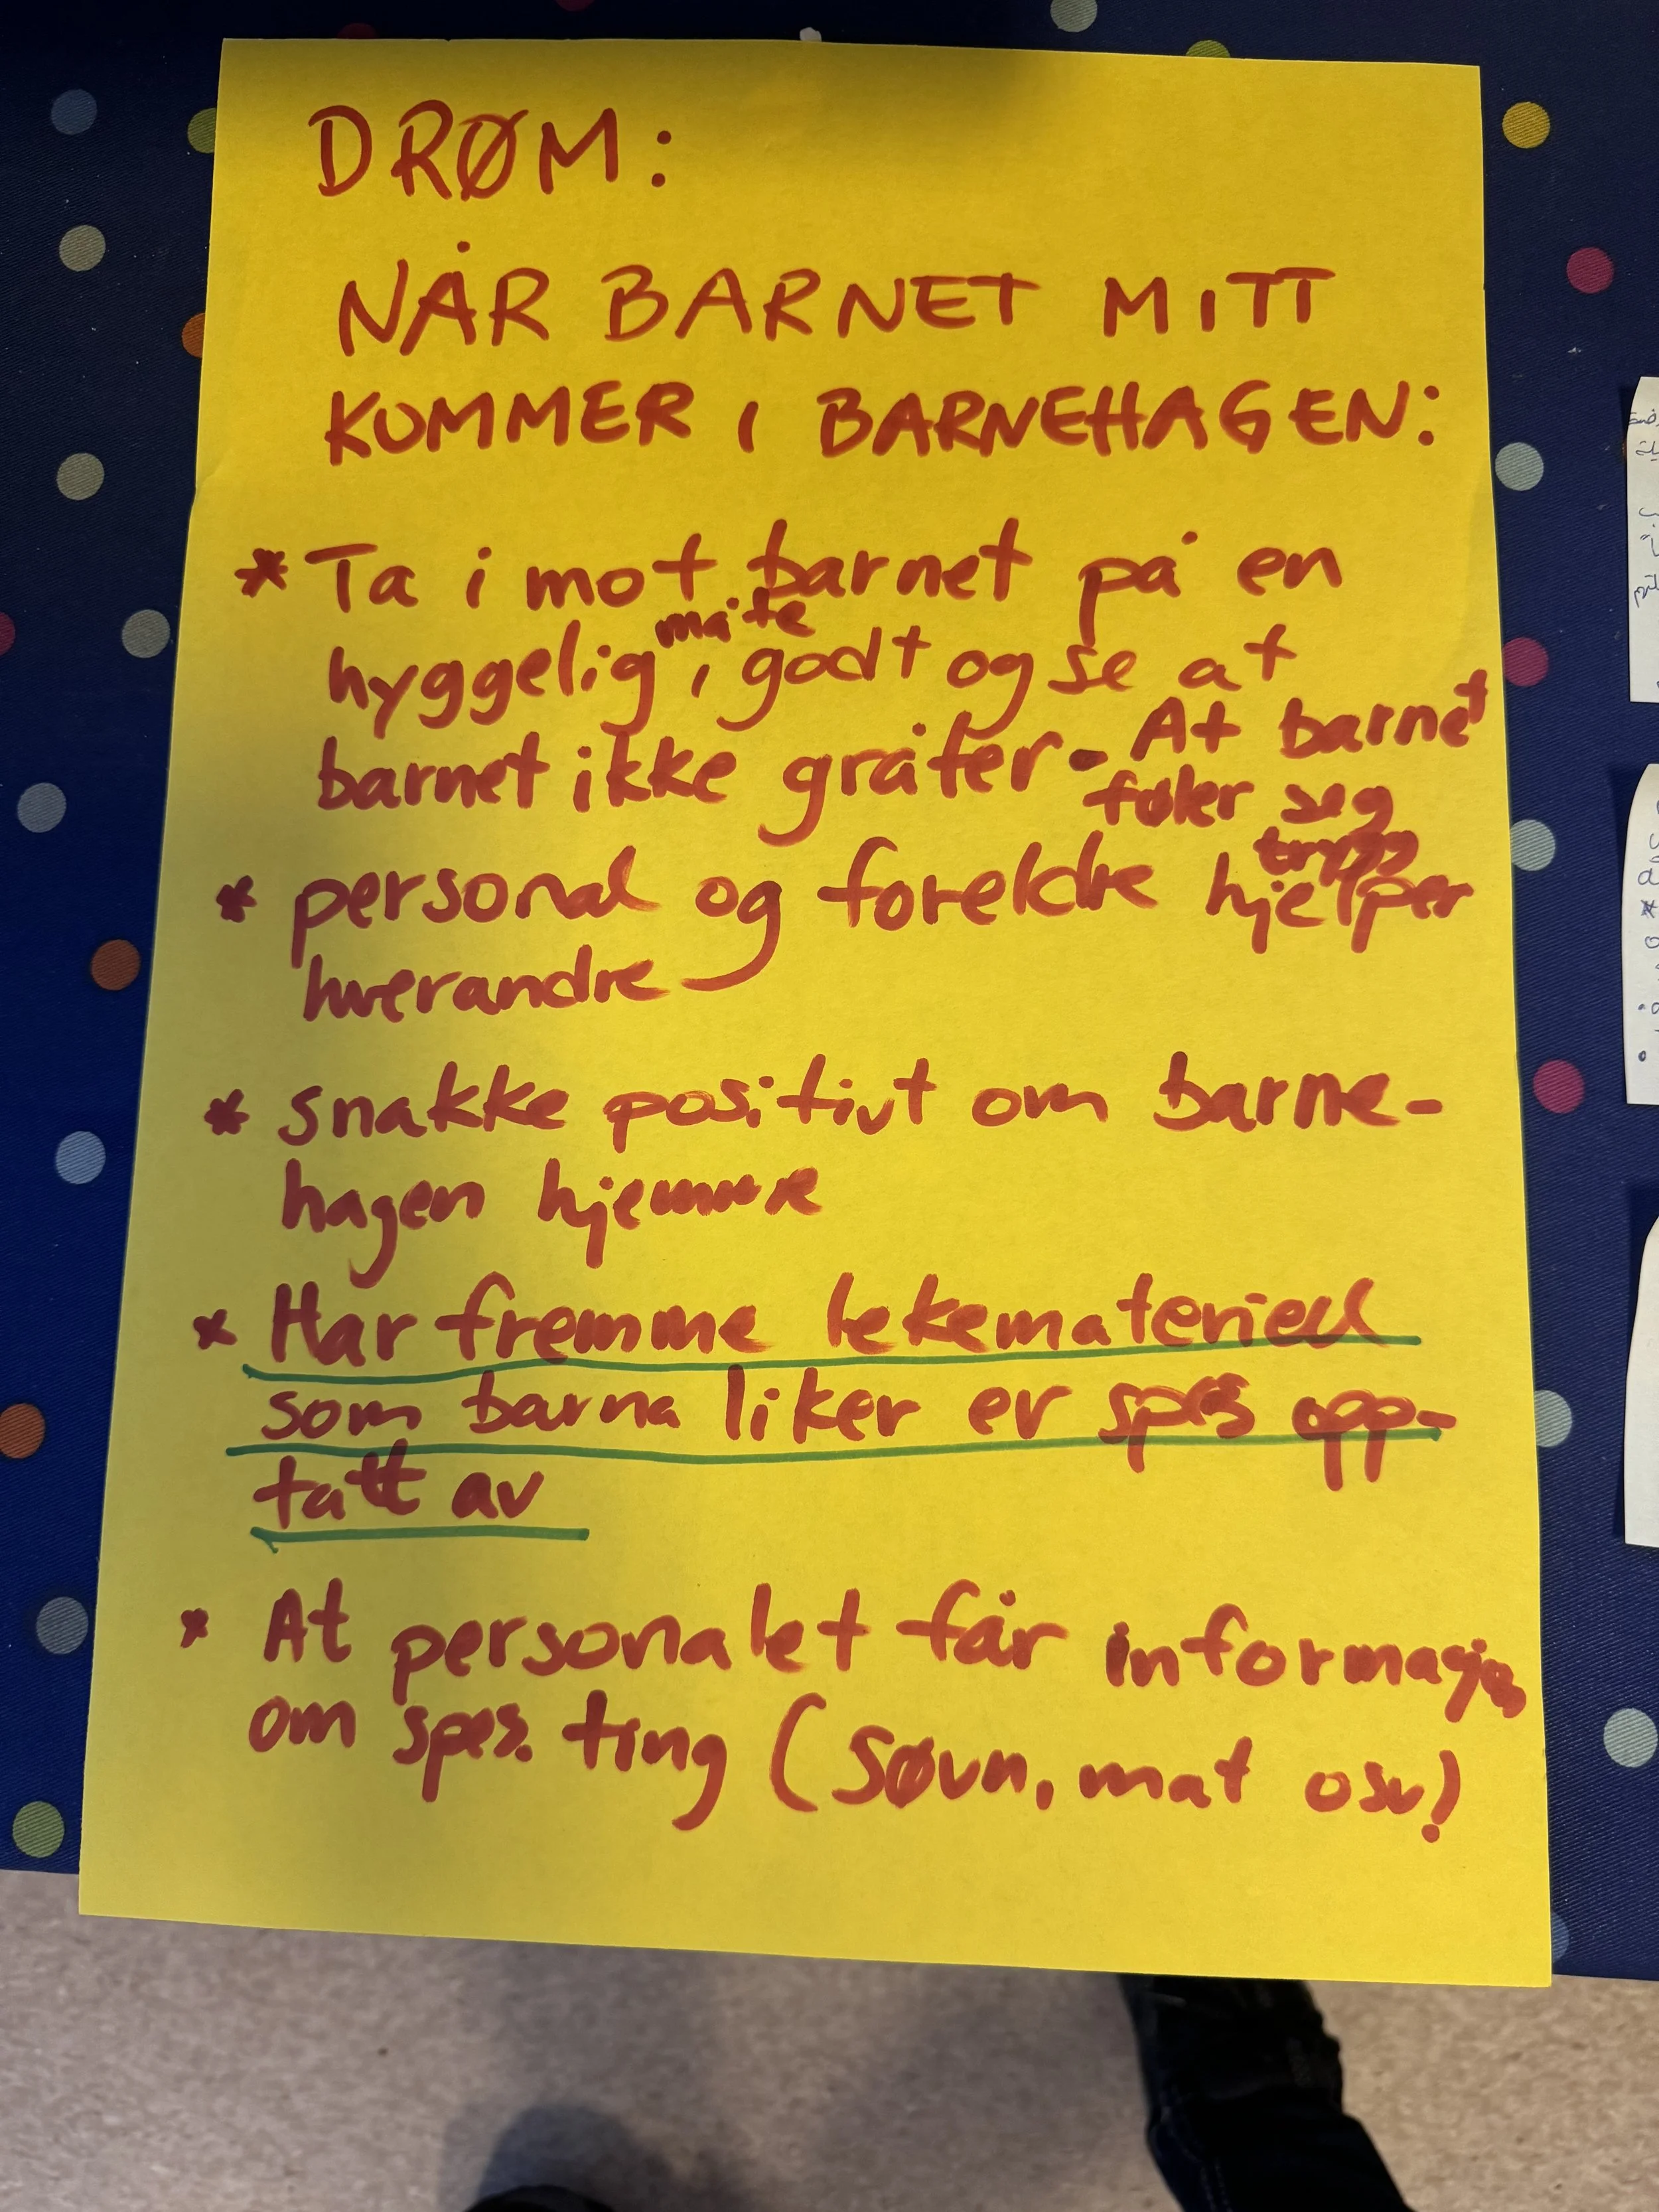 DRØM:
NÅR BARNET MITT
KOMMER I BARNEHAGEN:
* Ta i mot barnet på en
hyggelig måte, godt og se at
barnet ikke gråter - At barnet
føler seg
trygg
* personal og foreldre hjelper
hverandre
* snakke positivt om barne-
hagen hjemme
* Har fremme lekemateriell
som barna liker er spes opp-
tatt av
* At personalet får informasjon
om spes. ting (søvn, mat osv)